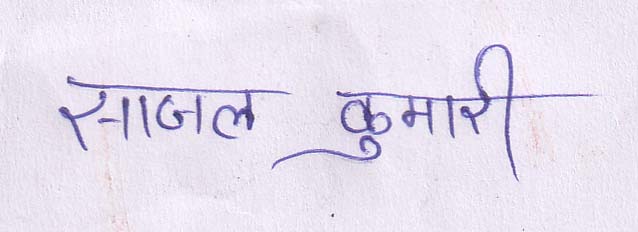 साजल कुमारी